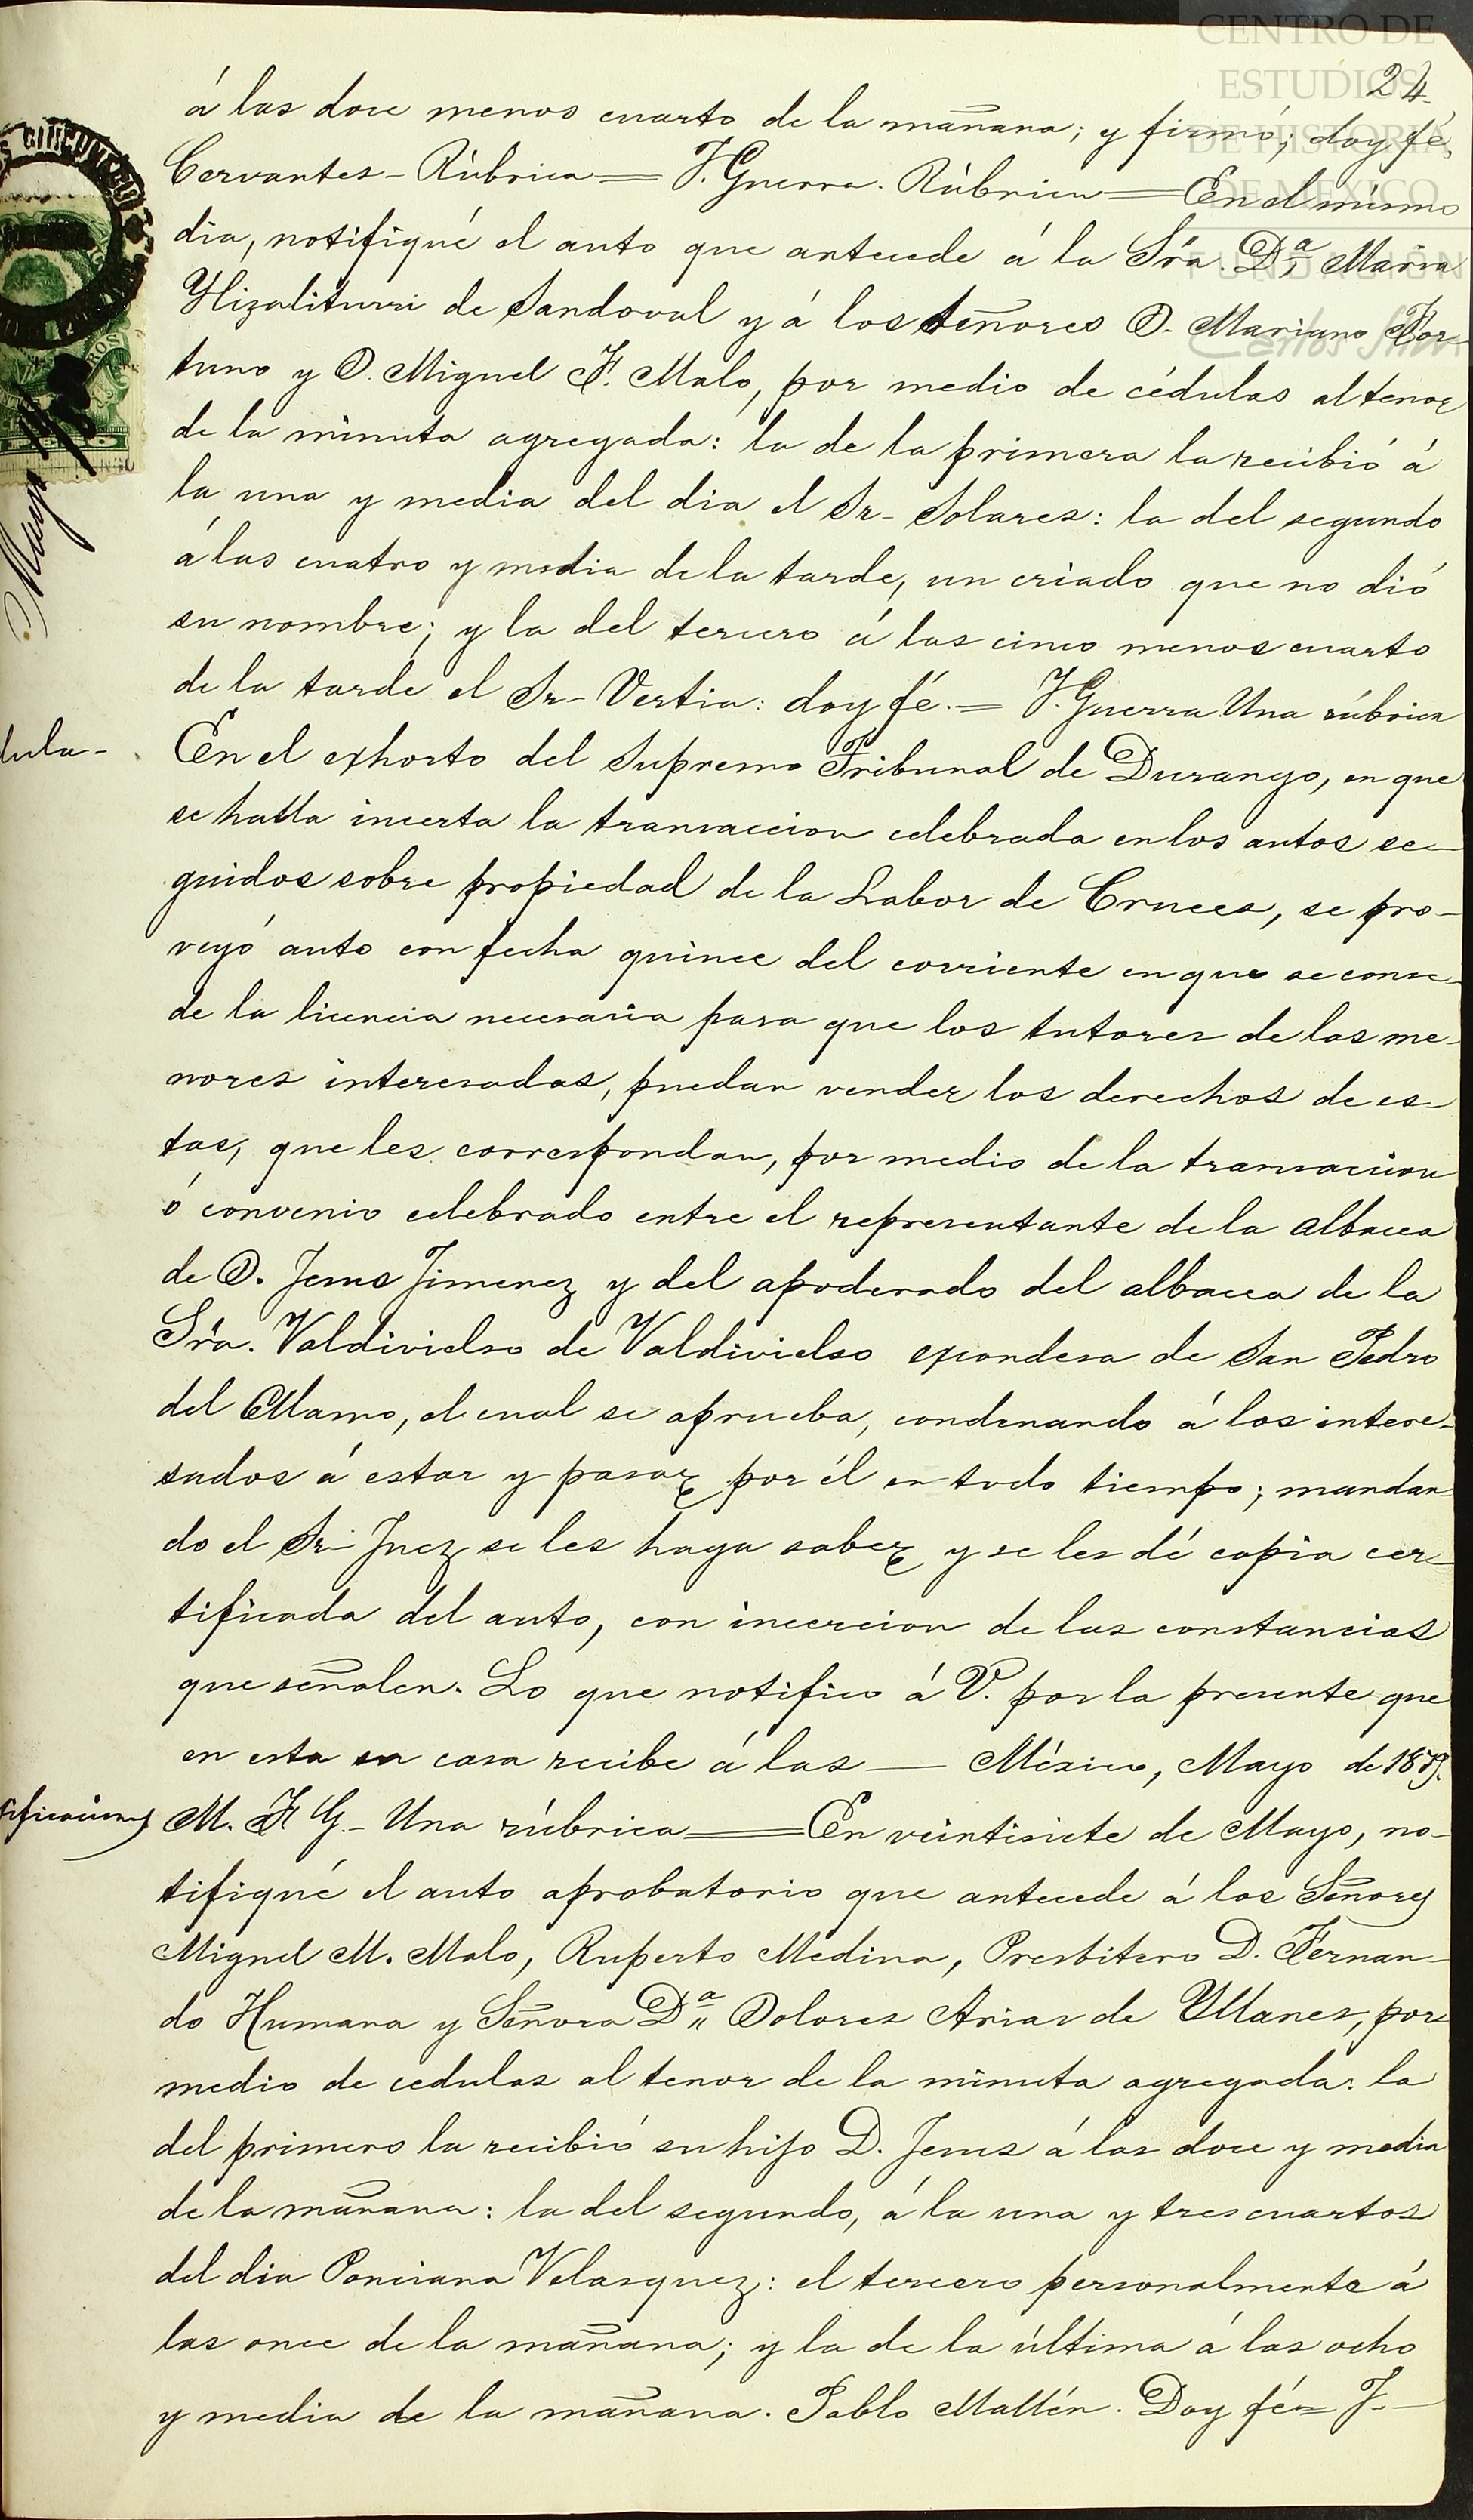 CENTRO DE
ESTUDIOS
DE HISTORIA
DE MEXICO
FUNDACIÓN
Carlos Slim
24
á las doce menos cuarto de la mañana; y firmó; doy fé,
Cervantes - Rúbrica = J. Guerra. Rúbrica = En el mismo
dia, notifiqué el auto que antecede á la Sra. Dª María
Ylizaliturri de Sandoval y á los Señores D. Mariano For-
tuno y D. Miguel F. Malo, por medio de cédulas al tenor
de la minuta agregada: la de la primera la recibió á
la una y media del dia el Sr- Solares: la del segundo
á las cuatro y media de la tarde, un criado que no dió
su nombre; y la del tercero á las cinco menos cuarto
de la tarde el Sr- Vertia: doy fé. = J. Guerra Una rúbrica
dula-
En el exhorto del Supremo Tribunal de Durango, en que
se halla incerta la transaccion celebrada en los autos se-
guidos sobre propiedad de la Labor de Cruces, se pro-
veyó auto con fecha quince del corriente en que se conce-
de la licencia necesaria para que los tutores de las me-
nores interesadas, puedan vender los derechos de es-
tas, que les correspondan, por medio de la transaccion
ó convenio celebrado entre el representante de la albacea
de D. Jesus Jimenez y del apoderado del albacea de la
Sra. Valdivielso de Valdivielso excondesa de San Pedro
del Alamo, el cual se aprueba, condenando á los intere-
sados á estar y pasar por él en todo tiempo; mandan-
do el Sr- Juez se les haga saber y se les dé copia cer-
tificada del auto, con incercion de las constancias
que señalen. Lo que notifico á V. por la presente que
en esta su casa recibe á las — México, Mayo de 1879.
tificaciones
M. F G.- Una rúbrica = En veintisiete de Mayo, no-
tifiqué el auto aprobatorio que antecede á los Señores
Miguel M. Malo, Ruperto Medina, Presbitero D. Fernan-
do Humana y Señora Dª Dolores Arias de Yllanes, por
medio de cedulas al tenor de la minuta agregada: la
del primero la recibió su hijo D. Jesus á las doce y media
de la mañana: la del segundo, á la una y tres cuartos
del dia Ponciana Velasquez: el tercero personalmente á
las once de la mañana; y la de la última á las ocho
y media de la mañana. Pablo Mallén. Doy fé = J.-
Mayo